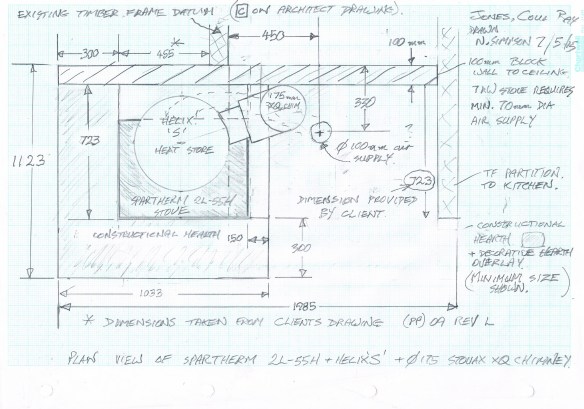 EXISTING TIMBER FRAME DATUM C ON ARCHITECT DRAWING).
JONES, COLD
DRAWN
N. SIMPSON 2/5/05
450
300
485
*
100mm
100mm BLOCK
WALL TO CEILING
STOVE REQUIRES
MIN. 70mm DIA
AIR SUPPLY
1123
723
HELIX
'S'
HEAT STORE
175mm
330
Ø100mm air
SUPPLY
723
TF PARTITION
TO KITCHEN.
SPARTHERM 2L-55H
STOVE
DIMENSION PROVIDED
BY CLIENT
CONSTRUCTIONAL HEARTH
150
300
CONSTRUCTIONAL
HEARTH
+ DECORATIVE HEARTH
OVERLAY
(MINIMUM SIZE
SHOWN.)
1033
1985
* DIMENSIONS TAKEN FROM CLIENTS DRAWING (PP) 09 REV L
PLAN VIEW OF SPARTHERM 2L-55H + HELIX 'S' + Ø175 STOVAX XQ CHIMNEY.